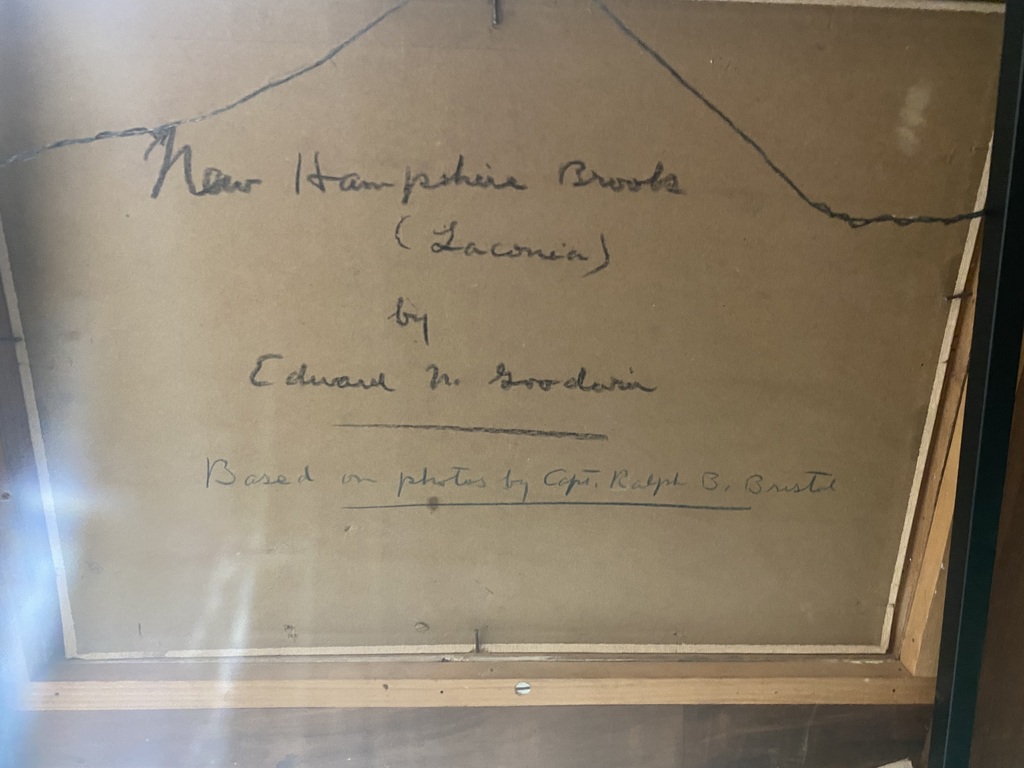 New Hampshire Brook
(Laconia)
by
Edward N. Goodwin
Based on photos by Capt. Ralph B. Bristol